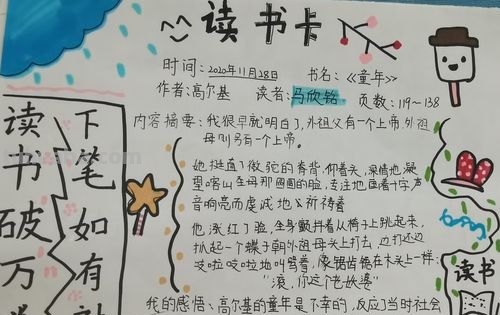 读书卡
时间：2020年11月28日 书名：《童年》
作者：高尔基 读者：马欣铭 页数：119～138
内容摘要：我很早就明白了，外祖父有一个上帝，外祖
母则另有一个上帝。
她挺直了微驼的脊背，仰着头，深情地凝
望喀山圣母那圆圆的脸，专注地画着十字，声
音响亮而虔诚地祈祷着
他涨红了脸，全身颤抖着从椅子上跳起来，
抓起一个碟子朝外祖母头上打去，边打还边
吱啦吱啦地叫骂着，像锯齿锯在木头上一样，
“滚，你这个老妖婆”
我的感悟：高尔基的童年是不幸的，反应了当时社会
读书破万
下笔如有
读书